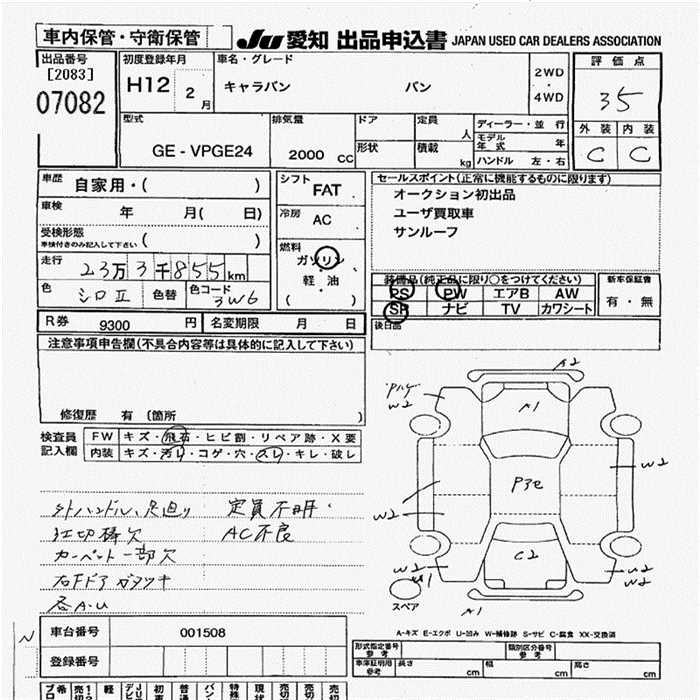 車内保管・守衛保管
JU 愛知 出品申込書 JAPAN USED CAR DEALERS ASSOCIATION
出品番号
[2083]
07082
初度登録年月
H12 2月
車名・グレード
キャラバン バン
2WD
・
4WD
評価点
35
外装 内装
C C
型式
GE - VPGE24
排気量
2000 CC
ドア
形状
定員 人
積載 kg
ディーラー・並行
モデル年式 年
ハンドル 左・右
車歴 自家用・( )
車検 年 月( 日)
受検形態
車検付きのみ記入して下さい ( )
走行 23万3千855km
色 シロⅡ 色替 色コード 3W6
シフト
FAT
冷房
AC
燃料
ガソリン
軽・油
( )
セールスポイント(正常に機能するものに限ります)
オークション初出品
ユーザ買取車
サンルーフ
装備品(純正品に限り○をつけてください)
PS PW エアB AW
SR ナビ TV カワシート
新車保証書
有・無
後日品
R券 9300 円 名変期限 月 日
注意事項申告欄(不具合内容等は具体的に記入して下さい)
修復歴 有 (箇所 )
検査員
記入欄
FW キズ・飛石・ヒビ割・リペア跡・X要
内装 キズ・汚レ・コゲ・穴・スレ・キレ・破レ
外ハンドル、足廻り 定員不明・
AC不良
カーペット一部欠
右Fドア ガタツキ
各A・U
A2
W2
A1
W2
P3e
W2
C2
W2
A1
スペア
A-キズ E-エクボ U-凹み W-補修跡 S-サビ C-腐食 XX-交換済
N
車台番号 001508
登録番号
形式指定番号
参考
類別区分番号
参考
車庫証明用
参考
長さ cm 幅 cm 高さ cm